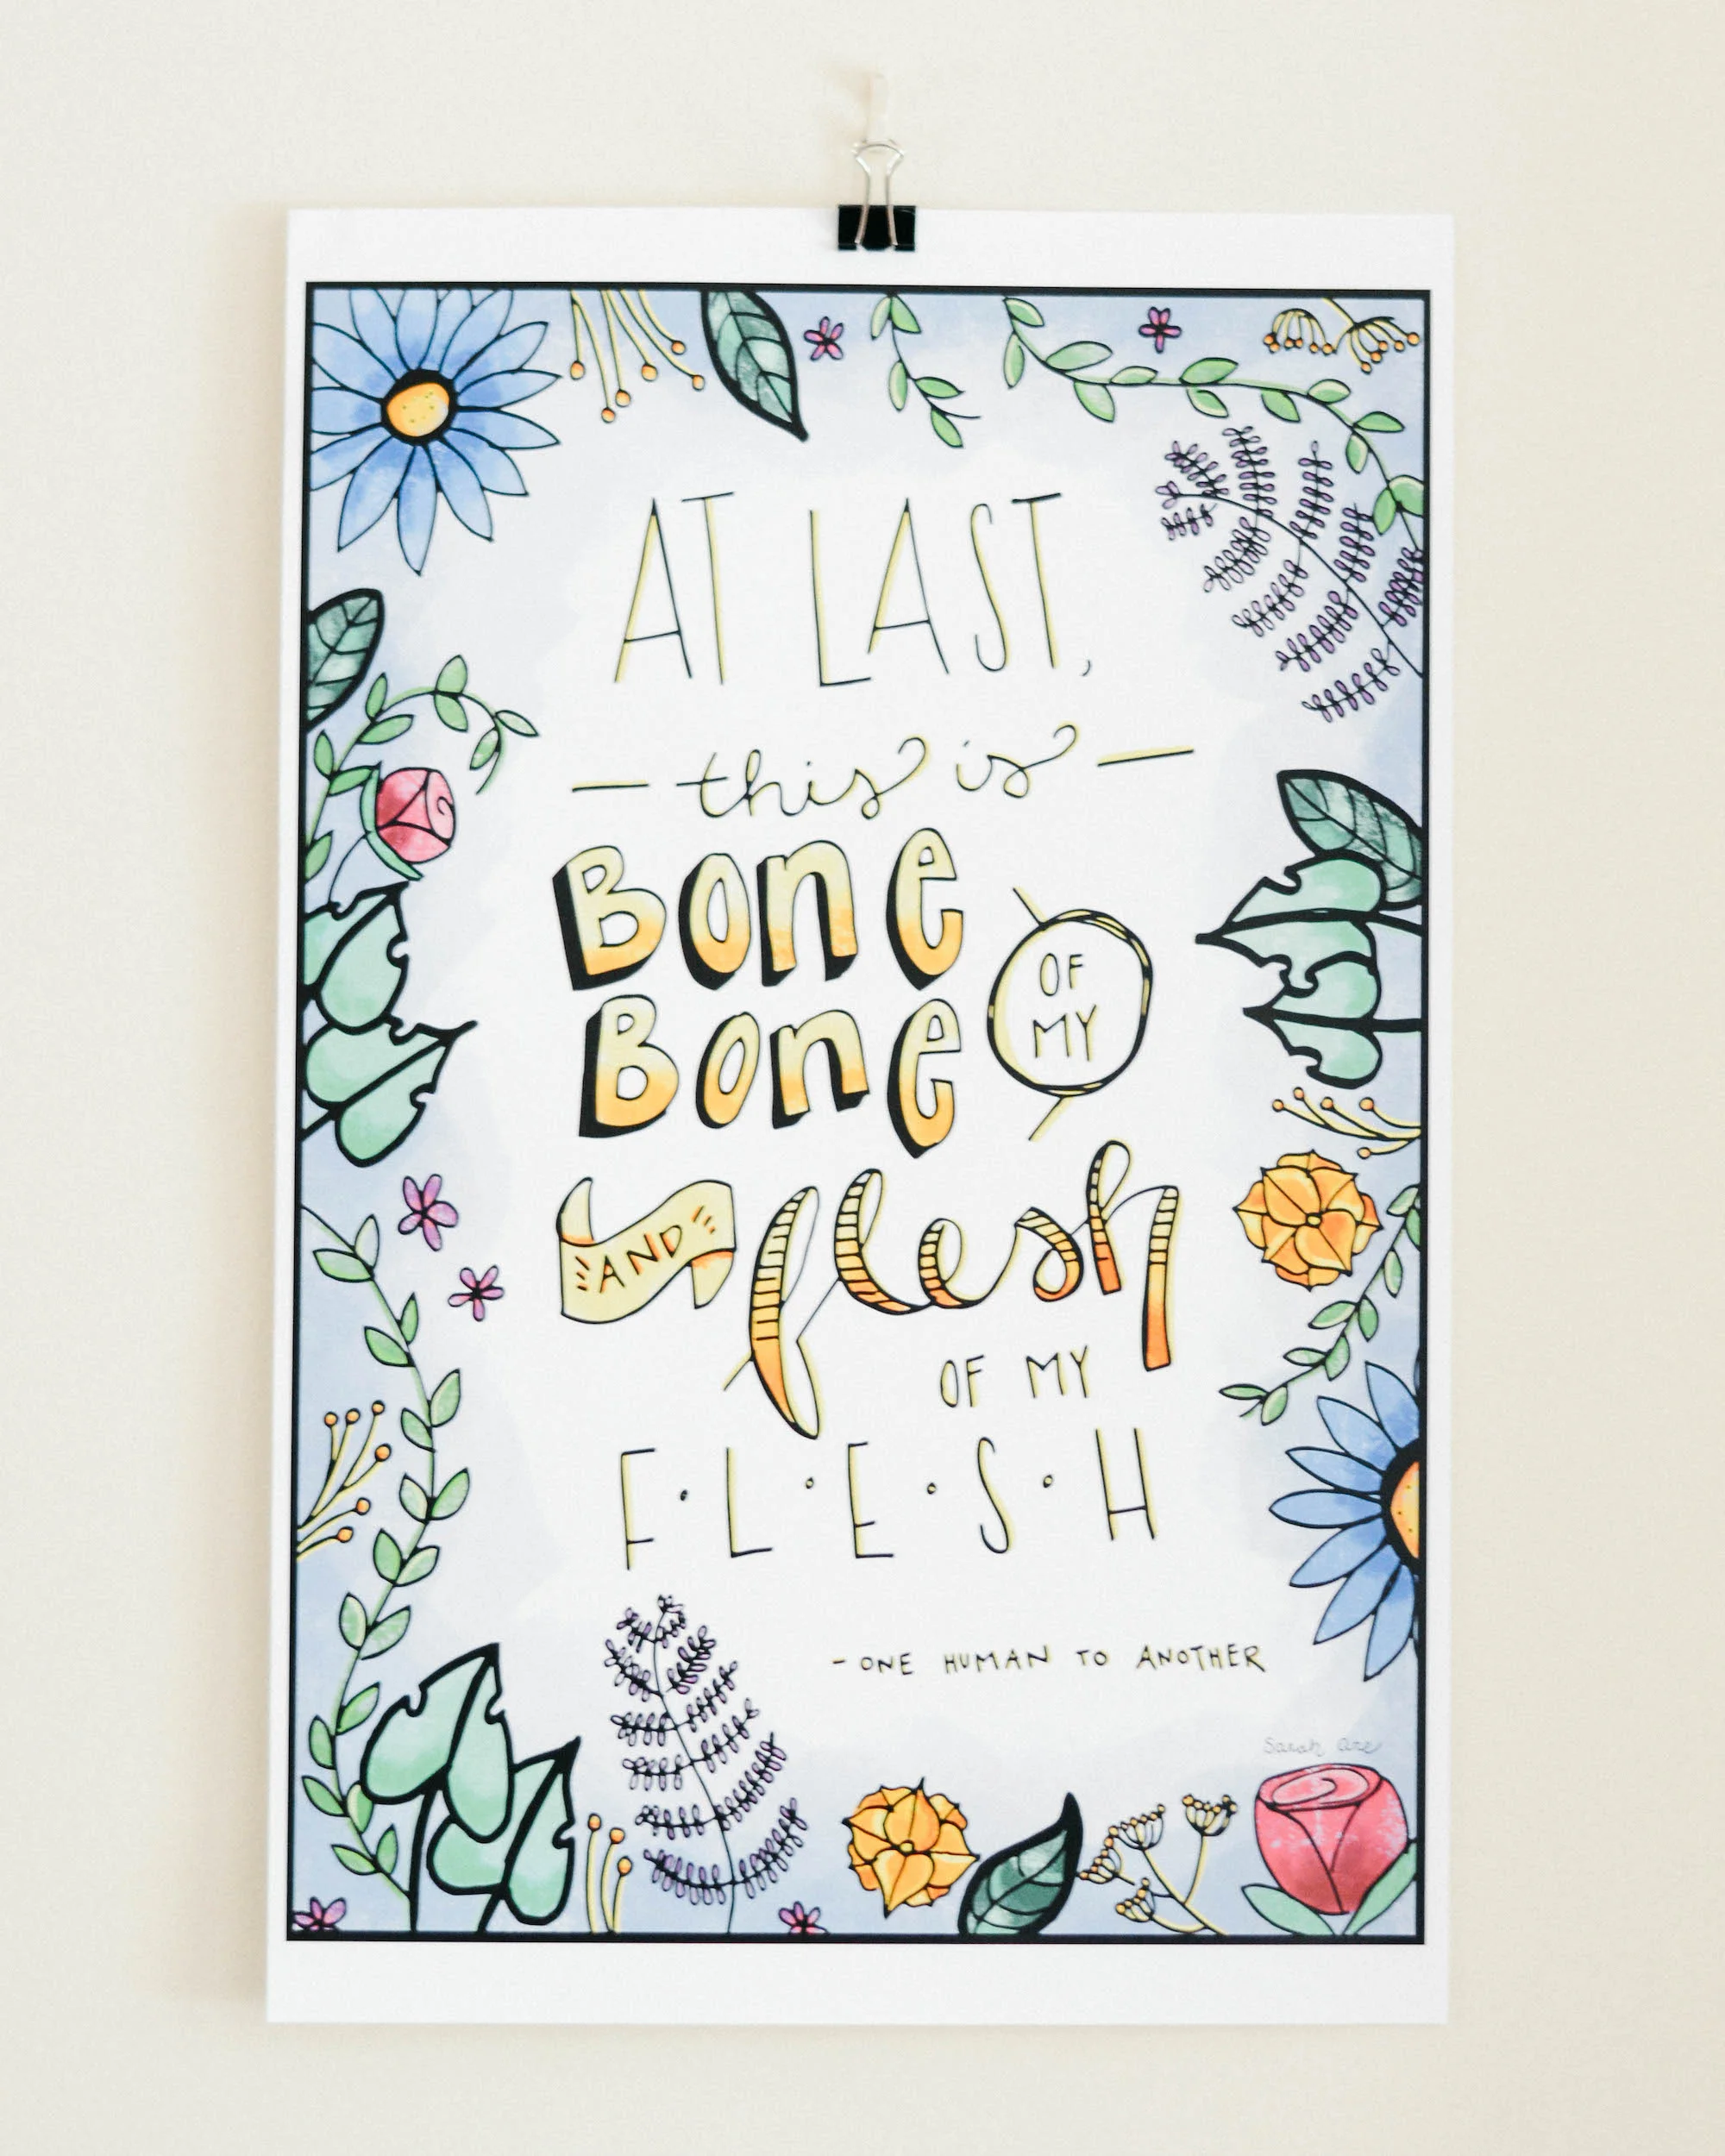 AT LAST,
this is
Bone OF MY
Bone
AND flesh
OF MY
F.L.E.S.H
- ONE HUMAN TO ANOTHER
Sarah Are